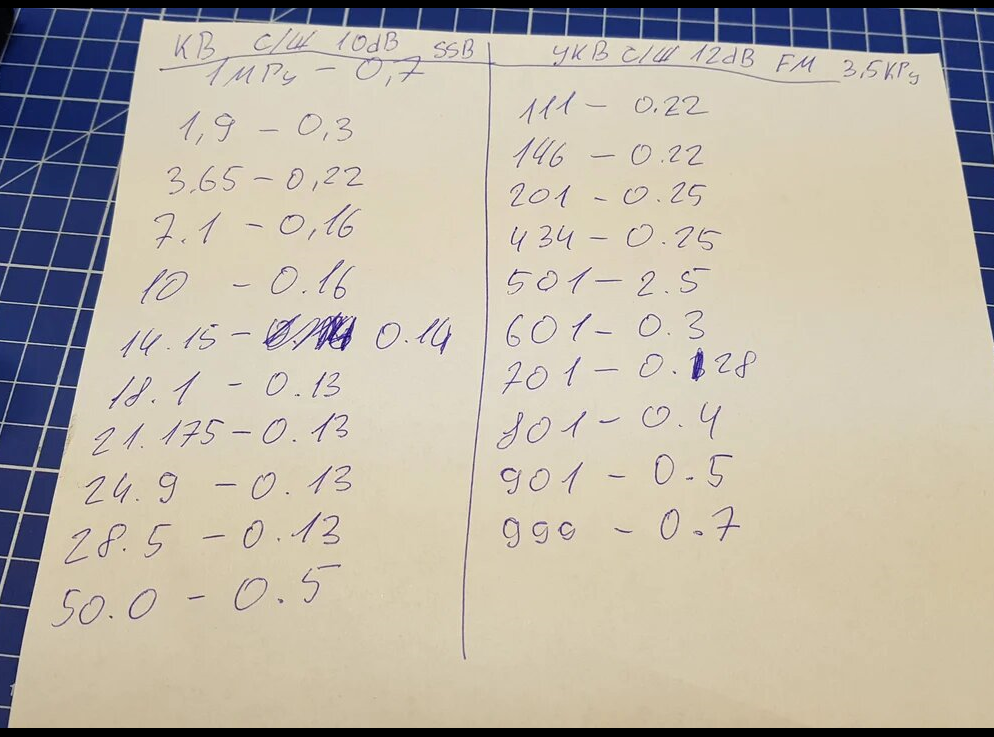 КВ С/Ш 10dB SSB
1МГц – 0,7
1,9 – 0,3
3.65 – 0,22
7.1 – 0,16
10 – 0.16
14.15 – 0.14
18.1 – 0.13
21.175 – 0.13
24.9 – 0.13
28.5 – 0.13
50.0 – 0.5
УКВ С/Ш 12dB FM 3,5КГц
111 – 0.22
146 – 0.22
201 – 0.25
434 – 0.25
501 – 2.5
601 – 0.3
701 – 0.28
801 – 0.4
901 – 0.5
999 – 0.7